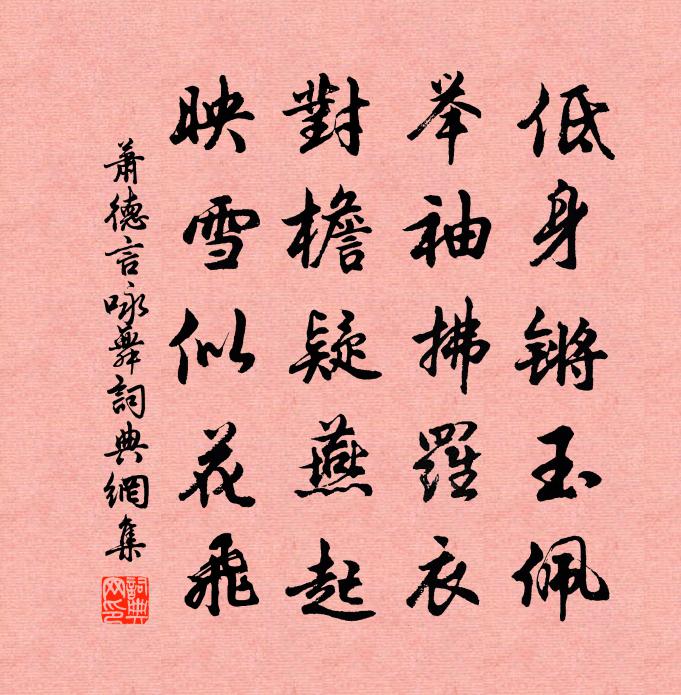 低身锵玉佩
举袖拂羅衣
對檐疑燕起
映雪似花飛
蕭德言咏舞詞典網集
詞典網印